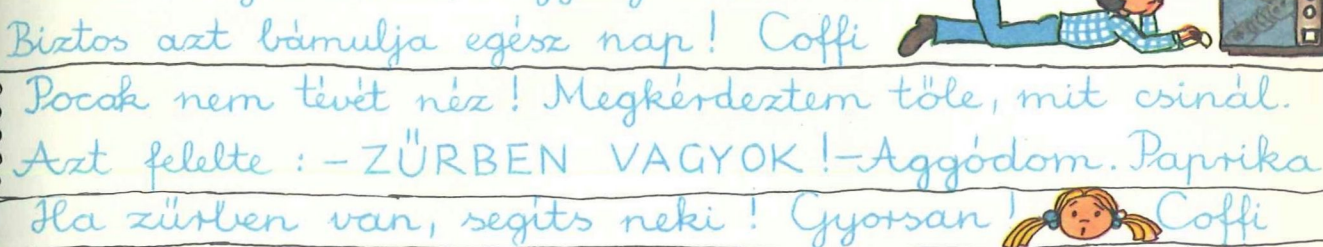 Biztos azt bámulja egész nap! Coffi
Pocak nem tévét néz! Megkérdeztem tőle, mit csinál.
Azt felelte: -ZŰRBEN VAGYOK!-Aggódom. Paprika
Ha zűrben van, segíts neki! Gyorsan! Coffi